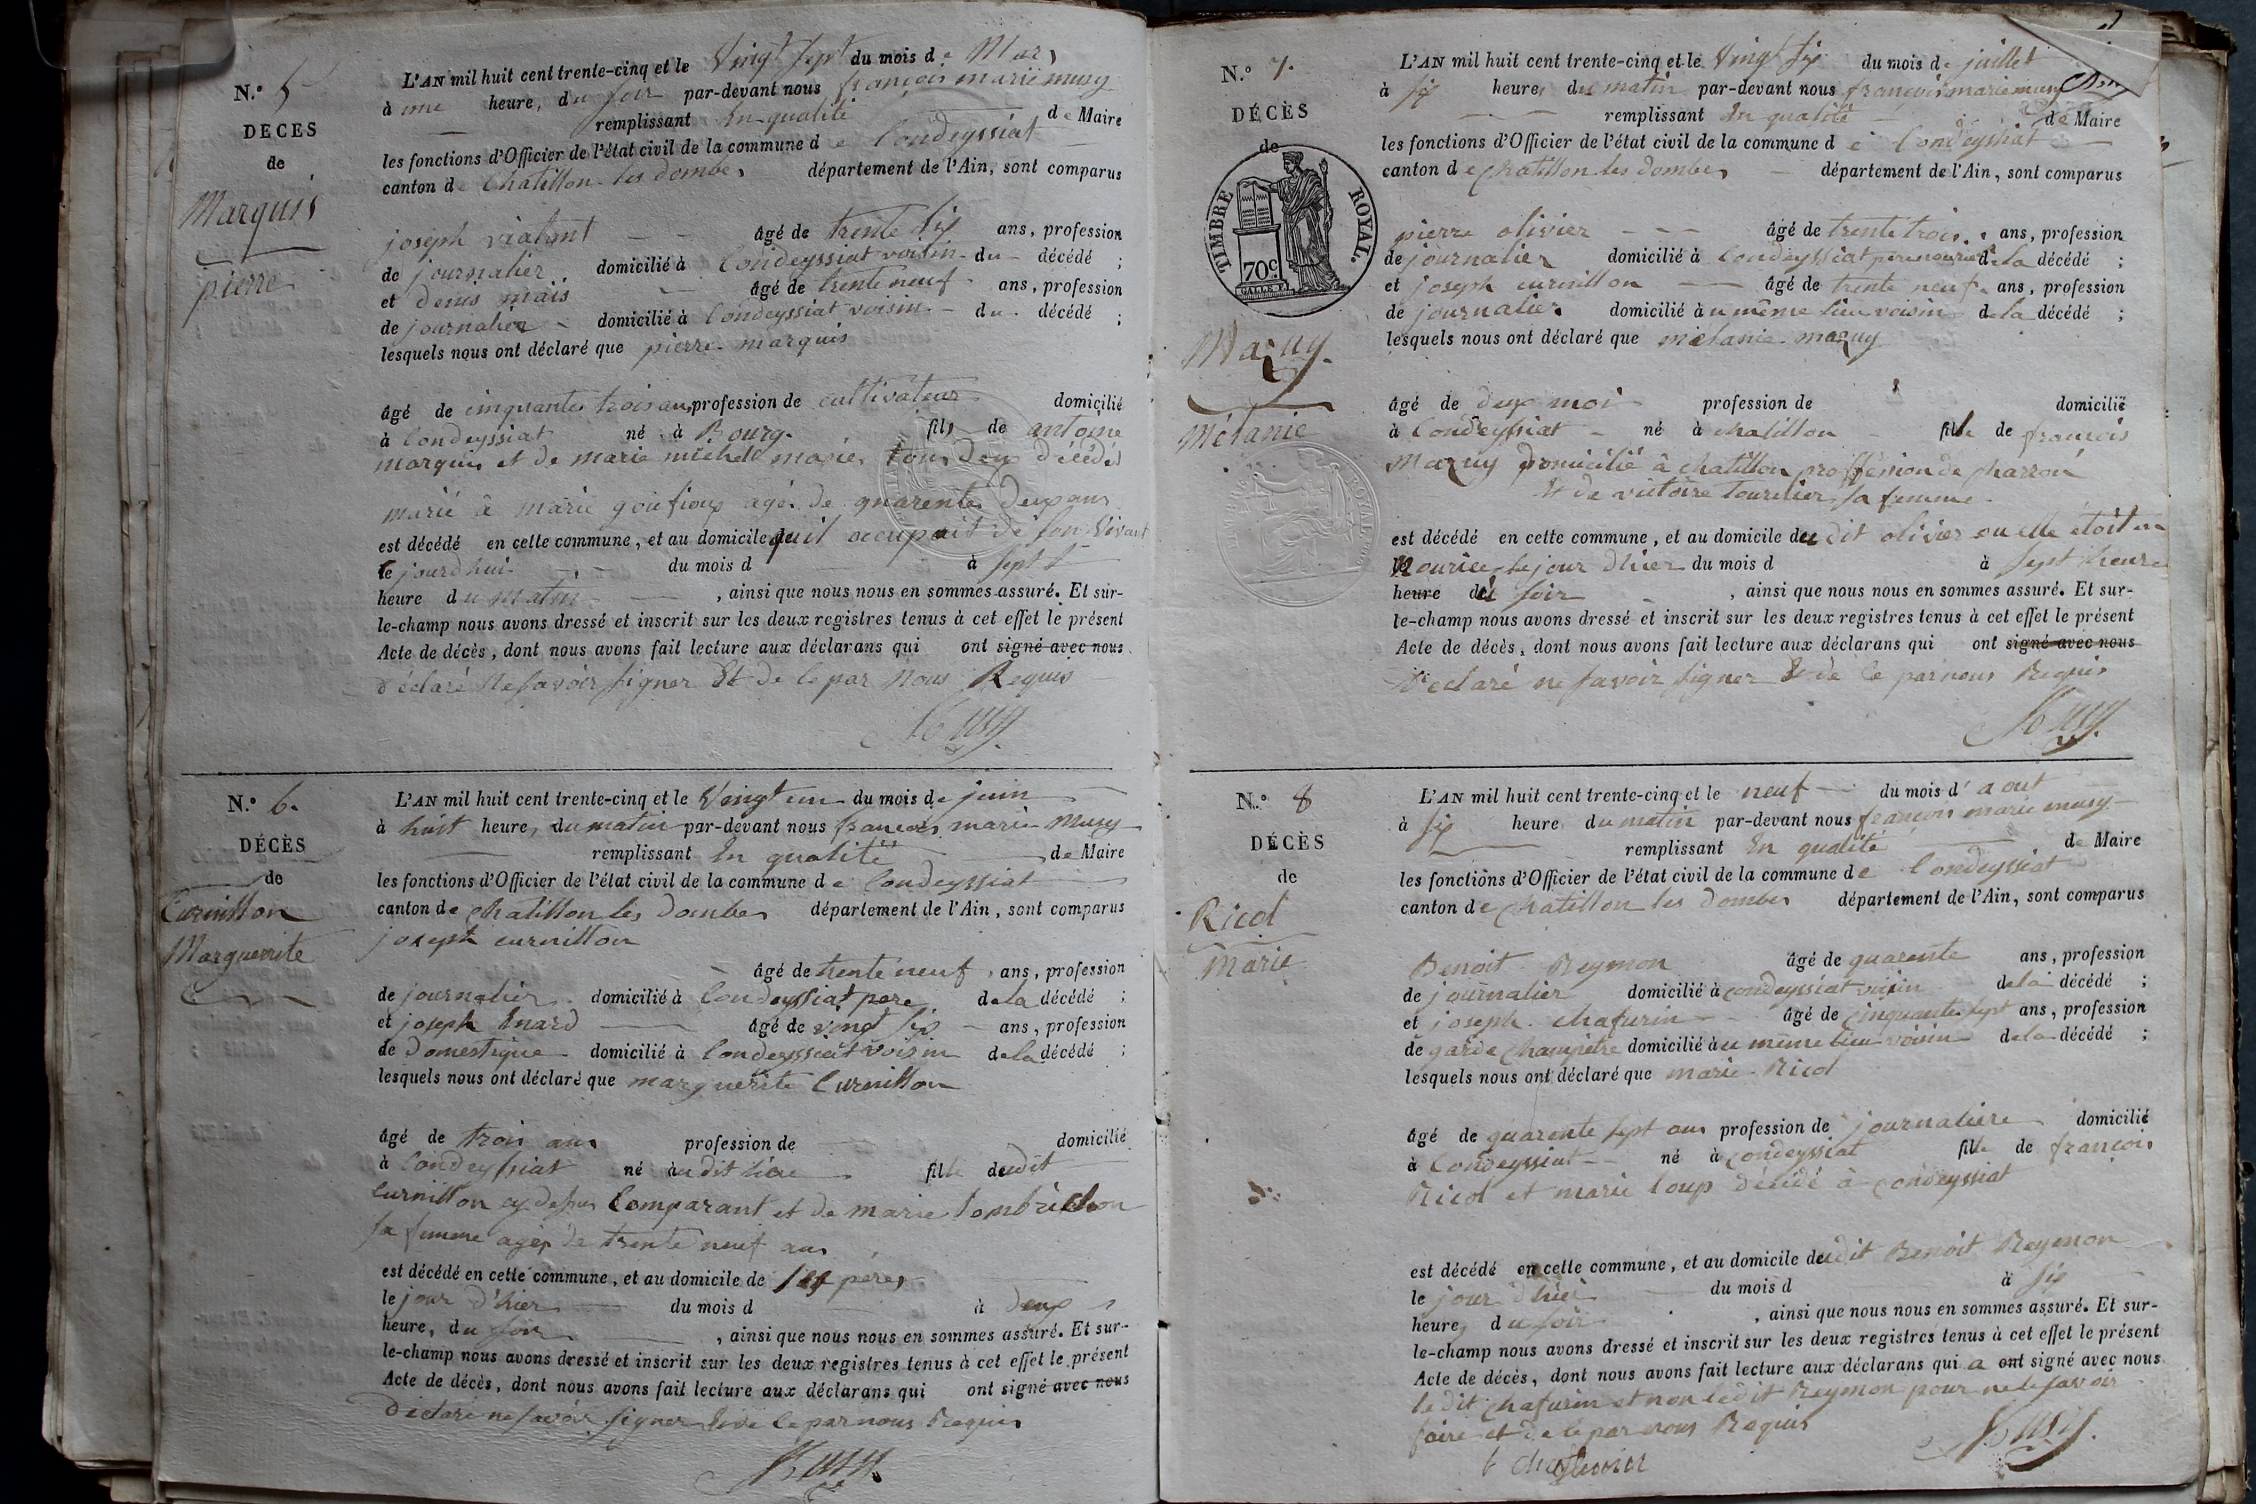 N.º 5
DÉCÈS
de
Marquis
pierre
L'AN mil huit cent trente-cinq et le Vingt sept du mois de Mars
à une heure, du soir par-devant nous françois marie musy
remplissant En qualité de Maire
les fonctions d'Officier de l'état civil de la commune de Condeyssiat
canton de Chatillon les dombes département de l'Ain, sont comparus
joseph viatant âgé de trente six ans, profession
de journalier domicilié à Condeyssiat voisin du décédé ;
et denis mais âgé de trente neuf ans, profession
de journalier domicilié à Condeyssiat voisin du décédé ;
lesquels nous ont déclaré que pierre marquis
âgé de cinquante trois ans profession de cultivateur domicilié
à Condeyssiat né à Bourg fils de antoine
marquis et de marie michel mariés tous deux décédés
marié à marie agé de quarente deux ans
est décédé en cette commune, et au domicile quil occupait de son Vivant
le jourd'hui du mois d à sept
heure du matin , ainsi que nous nous en sommes assuré. Et sur-
le-champ nous avons dressé et inscrit sur les deux registres tenus à cet effet le présent
Acte de décès, dont nous avons fait lecture aux déclarans qui ont signé avec nous
déclaré ne savoir signer Et de ce par Nous Requis
Musy
N.º 6.
DÉCÈS
de
Curnillon
Marguerite
L'AN mil huit cent trente-cinq et le Vingt un du mois de juin
à huit heure, du matin par-devant nous françois marie Musy
remplissant En qualité de Maire
les fonctions d'Officier de l'état civil de la commune de Condeyssiat
canton de chatillon les dombes département de l'Ain, sont comparus
joseph curnillon
âgé de trente neuf ans, profession
de journalier domicilié à Condeyssiat pere de la décédé ;
et joseph Enard âgé de vingt six ans, profession
de Domestique domicilié à Condeyssiat voisin de la décédé ;
lesquels nous ont déclaré que marguerite Curnillon
âgé de trois ans profession de domicilié
à Condeyssiat né au dit lieu fille dudit
Curnillon cy dessus Comparant et de marie
sa femme agés de trente neuf ans
est décédé en cette commune, et au domicile de ses peres
le jour d'hier du mois d à deux
heure, du soir , ainsi que nous nous en sommes assuré. Et sur-
le-champ nous avons dressé et inscrit sur les deux registres tenus à cet effet le présent
Acte de décès, dont nous avons fait lecture aux déclarans qui ont signé avec nous
Déclaré ne savoir signer Et de ce par nous Requis
Musy
N.º 7.
DÉCÈS
de
TIMBRE ROYAL.
70 c.
GALLE F.
Mazuy
Mélanie
L'AN mil huit cent trente-cinq et le Vingt six du mois de juillet
à six heure, du matin par-devant nous françois marie musy
remplissant En qualité de Maire
les fonctions d'Officier de l'état civil de la commune de Condeyssiat
canton de chatillon les dombes département de l'Ain, sont comparus
pierre olivier âgé de trente trois ans, profession
de journalier domicilié à Condeyssiat pere nouricier de la décédé ;
et joseph curnillon âgé de trente neuf ans, profession
de journalier domicilié au même lieu voisin de la décédé ;
lesquels nous ont déclaré que mélanie mazuy
âgé de deux moi profession de domicilié
à Condeyssiat né à chatillon fille de françois
Mazuy Domicilié à chatillon proffession de charron
Et de victoire tourelier sa femme
est décédé en cette commune, et au domicile dudit olivier ou elle étoit en
Nourice le jour d'hier du mois d à sept heure
heure du soir , ainsi que nous nous en sommes assuré. Et sur-
le-champ nous avons dressé et inscrit sur les deux registres tenus à cet effet le présent
Acte de décès, dont nous avons fait lecture aux déclarans qui ont signé avec nous
Déclaré ne savoir signer Et de ce par nous Requis
Musy
N.º 8
DÉCÈS
de
Ricol
Marie
L'AN mil huit cent trente-cinq et le neuf du mois d'aout
à six heure du matin par-devant nous françois marie musy
remplissant En qualité de Maire
les fonctions d'Officier de l'état civil de la commune de Condeyssiat
canton de chatillon les dombes département de l'Ain, sont comparus
Benoit Reymon âgé de quarente ans, profession
de journalier domicilié à condeyssiat voisin de la décédé ;
et joseph chafurin âgé de cinquante sept ans, profession
de garde champêtre domicilié au même lieu voisin de la décédé ;
lesquels nous ont déclaré que marie Ricol
âgé de quarente sept ans profession de journaliere domicilié
à Condeyssiat né à condeyssiat fille de françois
Ricol et marie loup décédé à condeyssiat
est décédé en cette commune, et au domicile dudit Benoit Reymon
le jour d'hier du mois d à six
heure, du soir , ainsi que nous nous en sommes assuré. Et sur-
le-champ nous avons dressé et inscrit sur les deux registres tenus à cet effet le présent
Acte de décès, dont nous avons fait lecture aux déclarans qui a ont signé avec nous
le dit chafurin et non ledit Reymon pour ne le savoir
faire et de ce par nous Requis
Musy